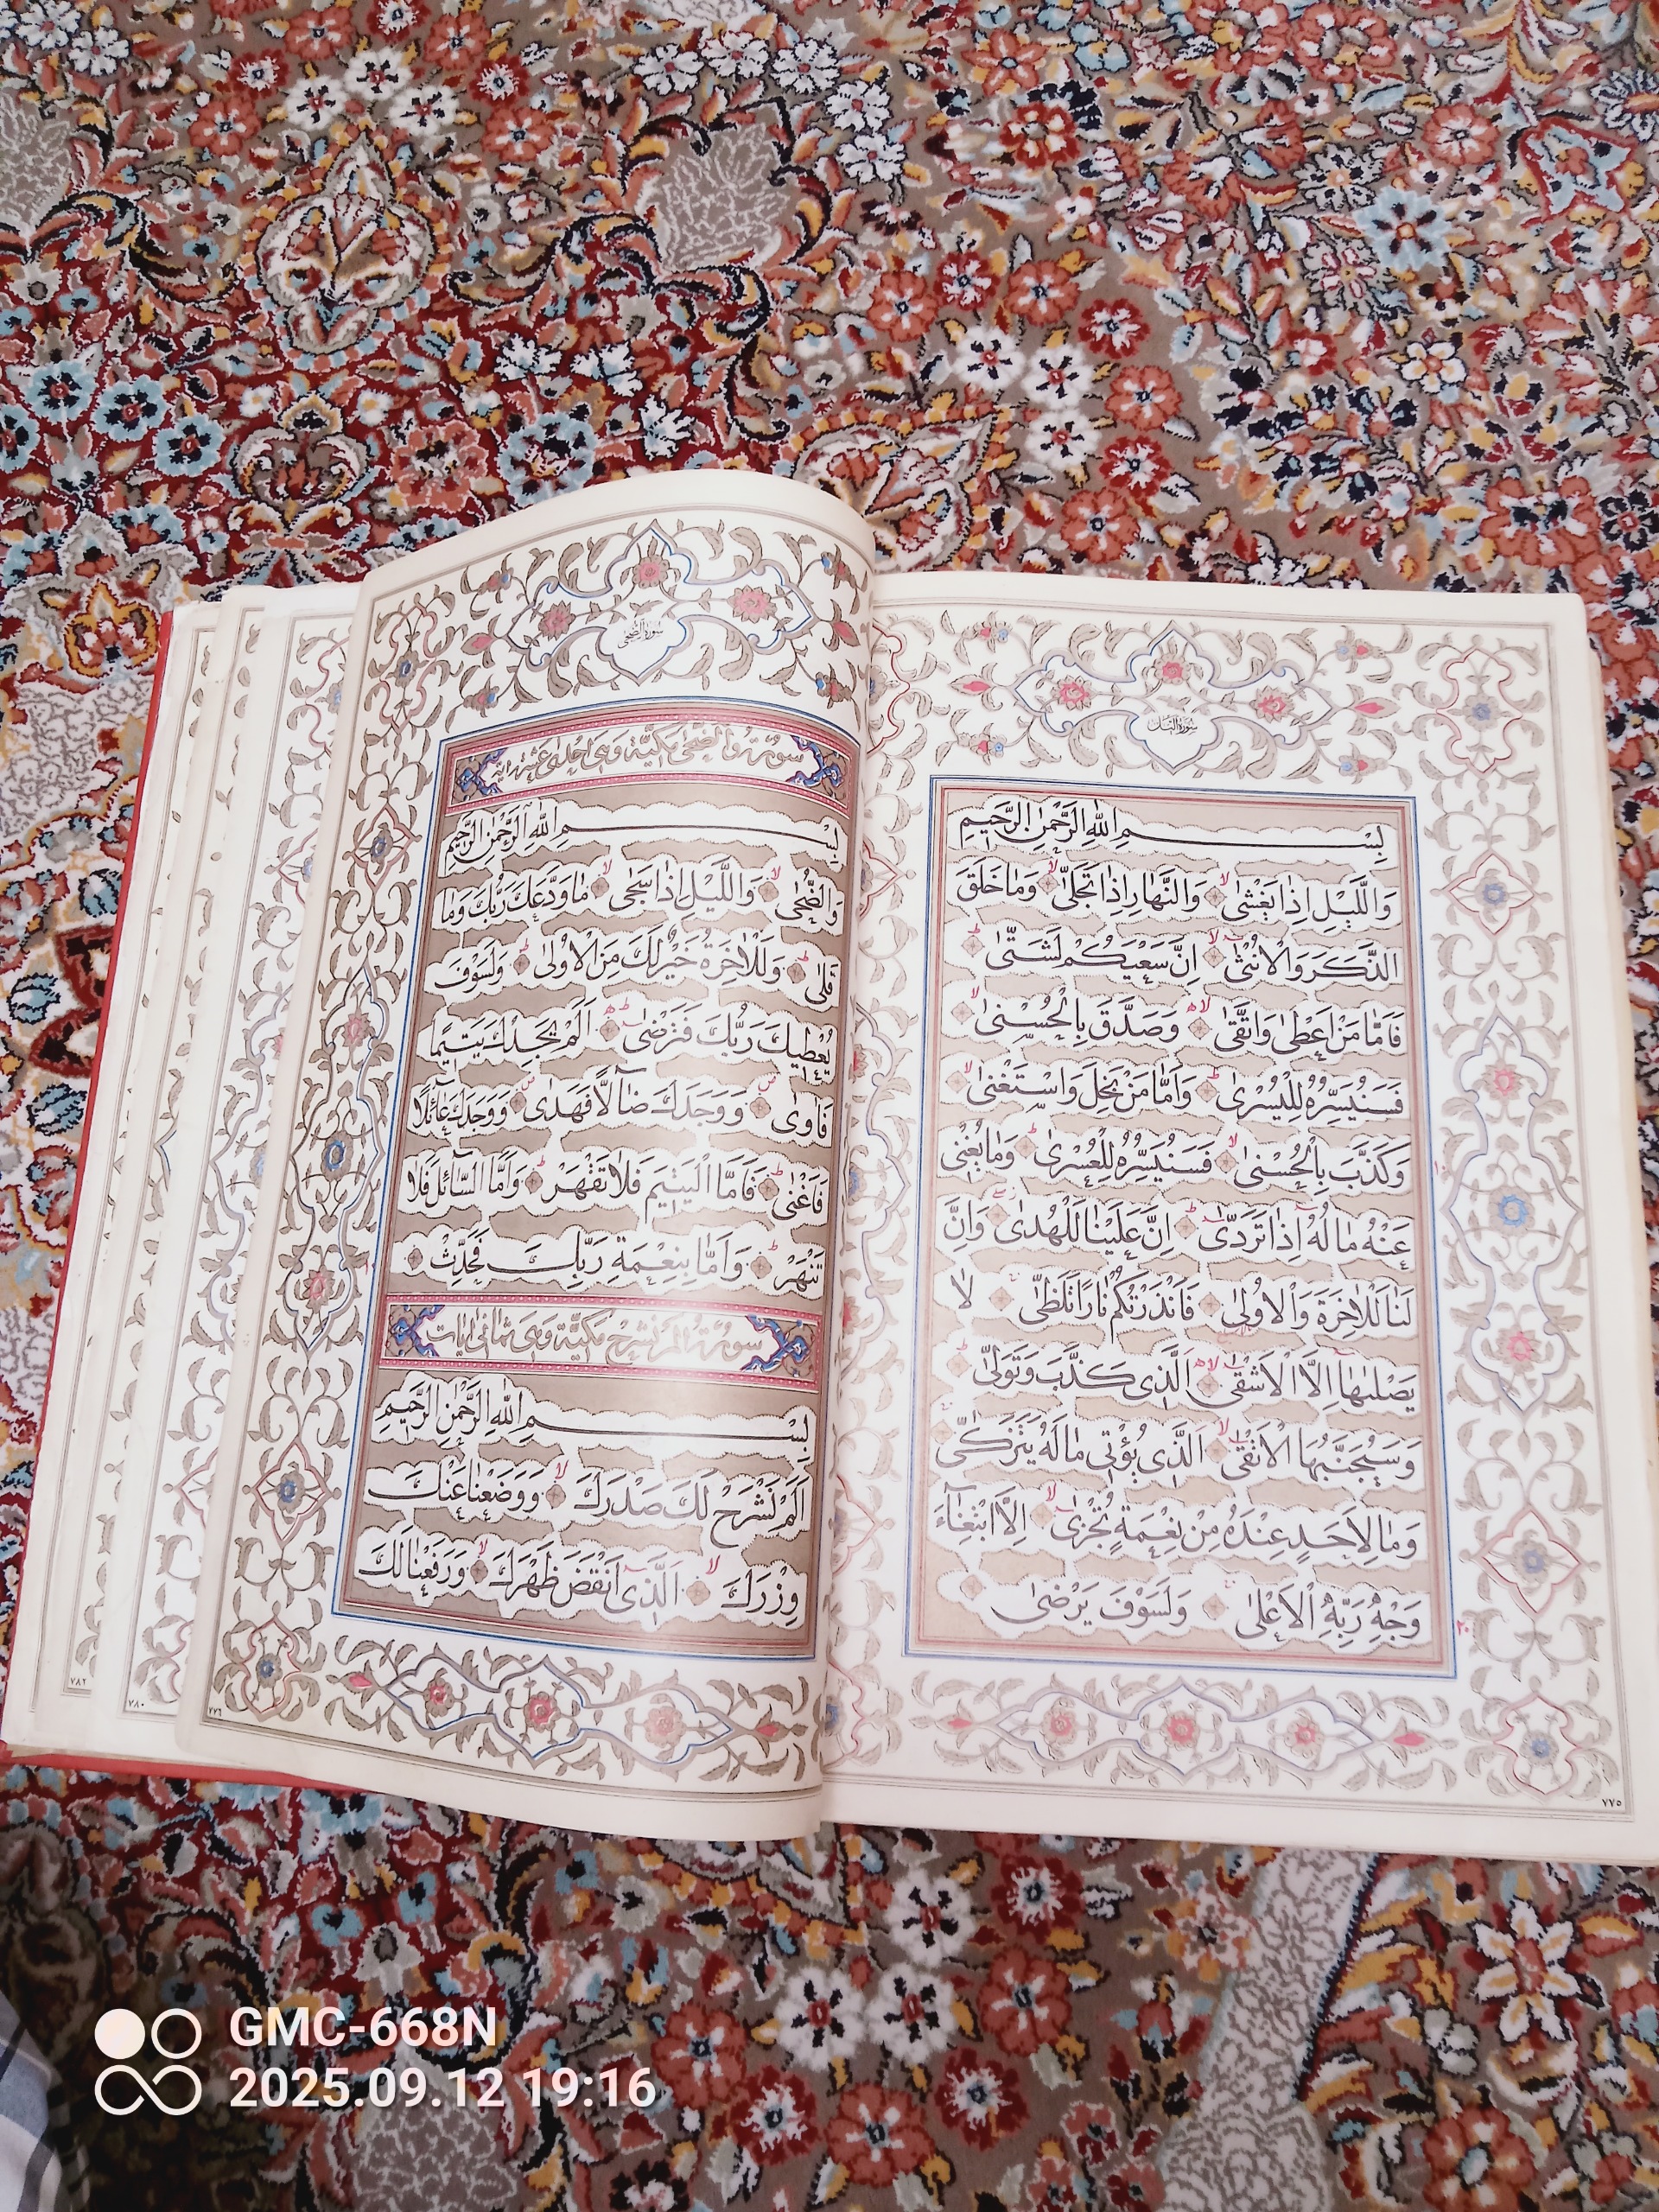 سورة الیل
بِسْمِ اللّٰهِ الرَّحْمٰنِ الرَّحیمِ
وَاللَّیْلِ اِذٰا یَغْشٰی وَالنَّهٰارِ اِذٰا تَجَلّٰی وَمٰا خَلَقَ
الذَّکَرَ وَالْاُنْثٰی اِنَّ سَعْیَکُمْ لَشَتّٰی
فَاَمّٰا مَنْ اَعْطٰی وَاتَّقٰی وَصَدَّقَ بِالْحُسْنٰی
فَسَنُیَسِّرُهُ لِلْیُسْرٰی وَاَمّٰا مَنْ بَخِلَ وَاسْتَغْنٰی
وَکَذَّبَ بِالْحُسْنٰی فَسَنُیَسِّرُهُ لِلْعُسْرٰی وَمٰا یُغْنی
عَنْهُ مٰالُهُ اِذٰا تَرَدّٰی اِنَّ عَلَیْنٰا لَلْهُدٰی وَاِنَّ
لَنٰا لَلْاٰخِرَةَ وَالْاُولٰی فَاَنْذَرْتُکُمْ نٰارًا تَلَظّٰی لٰا
یَصْلٰیهٰا اِلَّا الْاَشْقٰی اَلَّذی کَذَّبَ وَتَوَلّٰی
وَسَیُجَنَّبُهَا الْاَتْقٰی اَلَّذی یُؤْتی مٰالَهُ یَتَزَکّٰی
وَمٰا لِاَحَدٍ عِنْدَهُ مِنْ نِعْمَةٍ تُجْزٰی اِلَّا ابْتِغٰاءَ
وَجْهِ رَبِّهِ الْاَعْلٰی وَلَسَوْفَ یَرْضٰی
١٠
٢٠
٧٧٥
سورة الضحی
سورة والضحی مکیّة وهی احدی عشرة ایة
بِسْمِ اللّٰهِ الرَّحْمٰنِ الرَّحیمِ
وَالضُّحٰی وَاللَّیْلِ اِذٰا سَجٰی مٰا وَدَّعَکَ رَبُّکَ وَمٰا
قَلٰی وَلَلْاٰخِرَةُ خَیْرٌ لَکَ مِنَ الْاُولٰی وَلَسَوْفَ
یُعْطیکَ رَبُّکَ فَتَرْضٰی اَلَمْ یَجِدْکَ یَتیمًا
فَاٰوٰی وَوَجَدَکَ ضٰالًّا فَهَدٰی وَوَجَدَکَ عٰائِلًا
فَاَغْنٰی فَاَمَّا الْیَتیمَ فَلٰا تَقْهَرْ وَاَمَّا السّٰائِلَ فَلٰا
تَنْهَرْ وَاَمّٰا بِنِعْمَةِ رَبِّکَ فَحَدِّثْ
سورة الم نشرح مکیّة وهی ثمانی ایات
بِسْمِ اللّٰهِ الرَّحْمٰنِ الرَّحیمِ
اَلَمْ نَشْرَحْ لَکَ صَدْرَکَ وَوَضَعْنٰا عَنْکَ
وِزْرَکَ اَلَّذی اَنْقَضَ ظَهْرَکَ وَرَفَعْنٰا لَکَ
٧٧٦
٧٨٠
٧٨٢
GMC-668N
2025.09.12 19:16